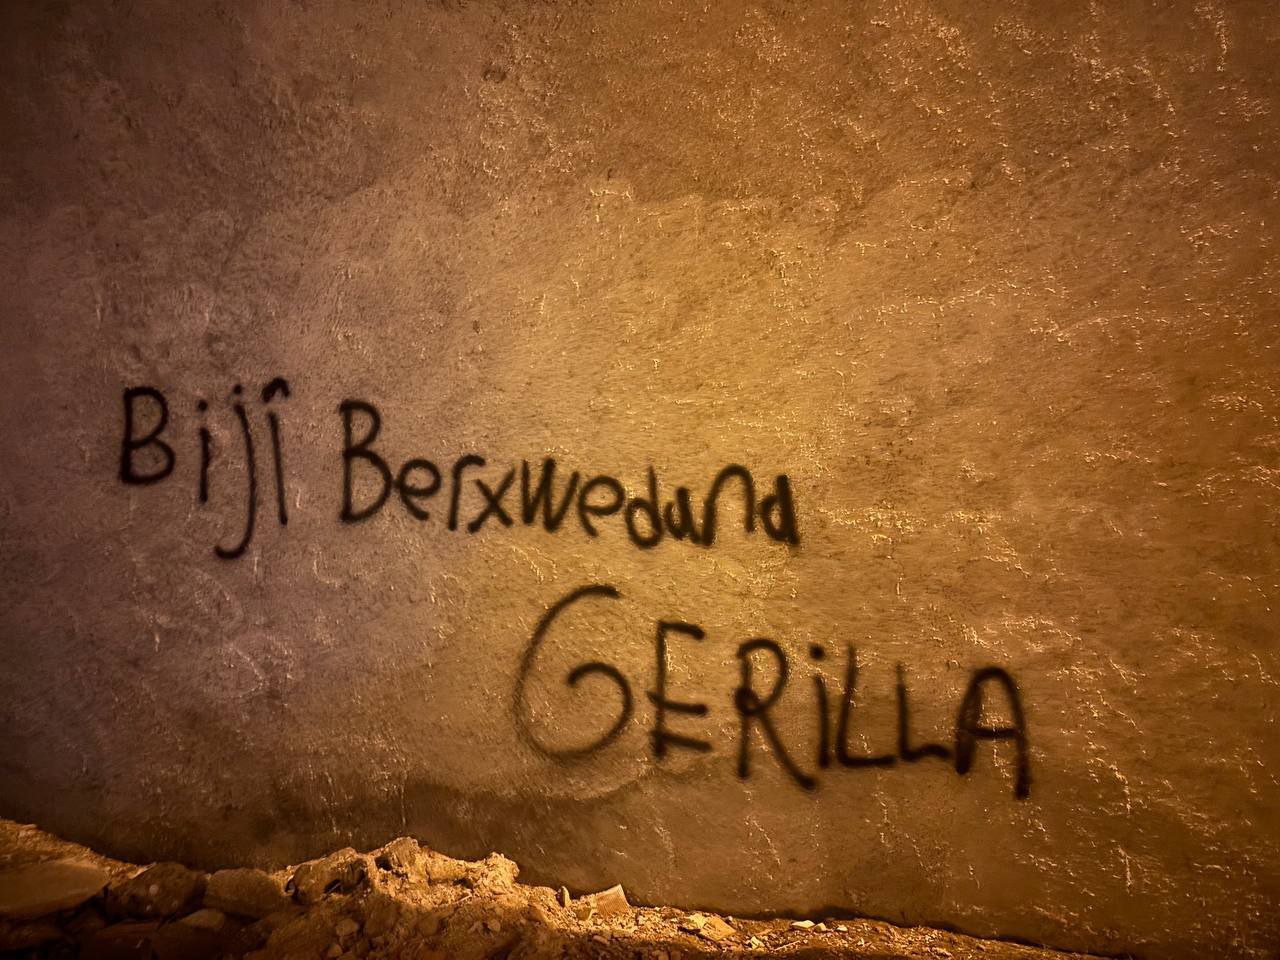 Bijî Berxwedana
GERiLLA